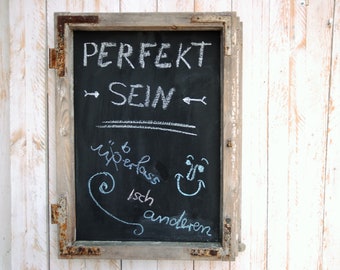 PERFEKT
SEIN
b
üperlass
isch
anderen